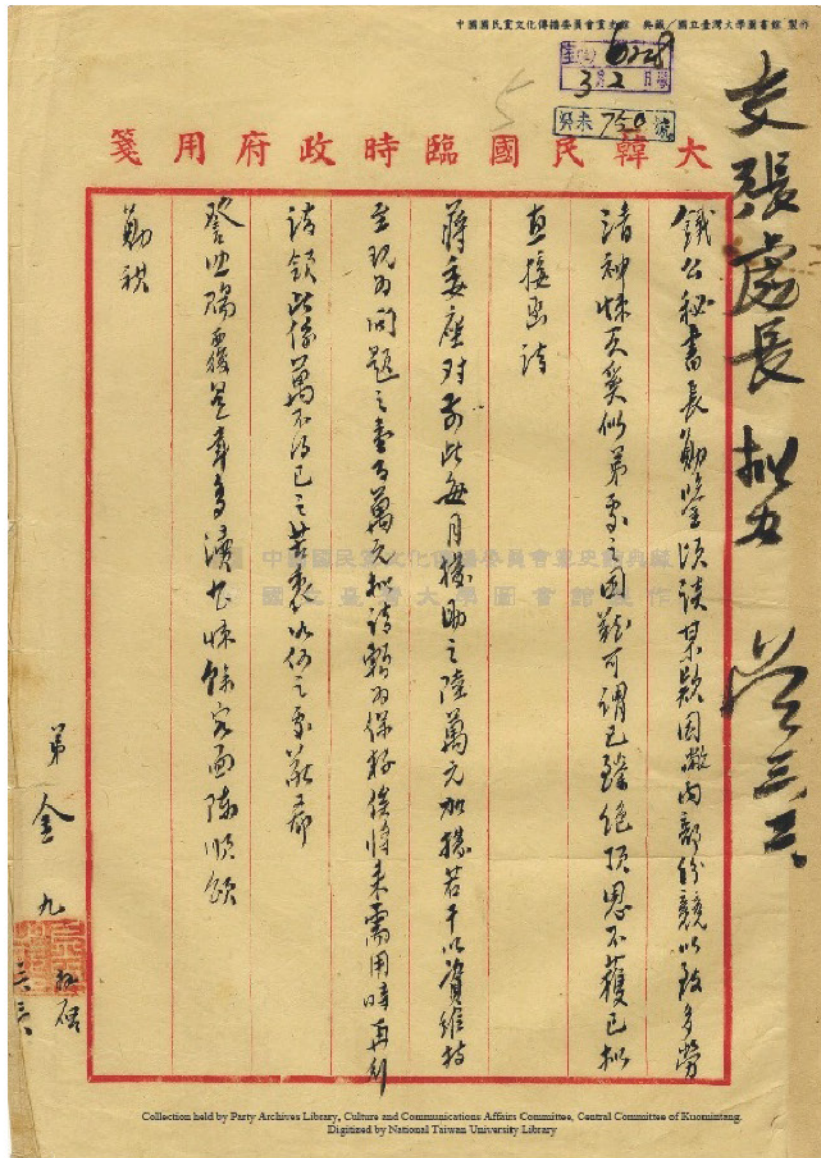 中國國民黨文化傳播委員會黨史館 典藏/國立臺灣大學圖書館 製作
6228
3月2日
癸未 750 號
大韓民國臨時政府用箋
交張處長 拟办 三、二、
鐵公秘書長勛鑒頃談某款因敝內部份競以致多勞
清神悚仄奚似第需之困難可謂已臻絕頂思不獲已拟
直接函請
蔣委座对前此每月援助之陸萬元加援若干以資維持
至現为問題之壹百萬元拟請暫为保好俟將来需用時再行
請領此係萬不得已之苦衷
詧此賜覆是幸多瀆也悚餘容面陳順頌
勛祺
弟 金九 拜啓
三、三、
中國國民黨文化傳播委員會黨史館典藏
國立臺灣大學圖書館製作
Collection held by Party Archives Library, Culture and Communications Affairs Committee, Central Committee of Kuomintang.
Digitized by National Taiwan University Library